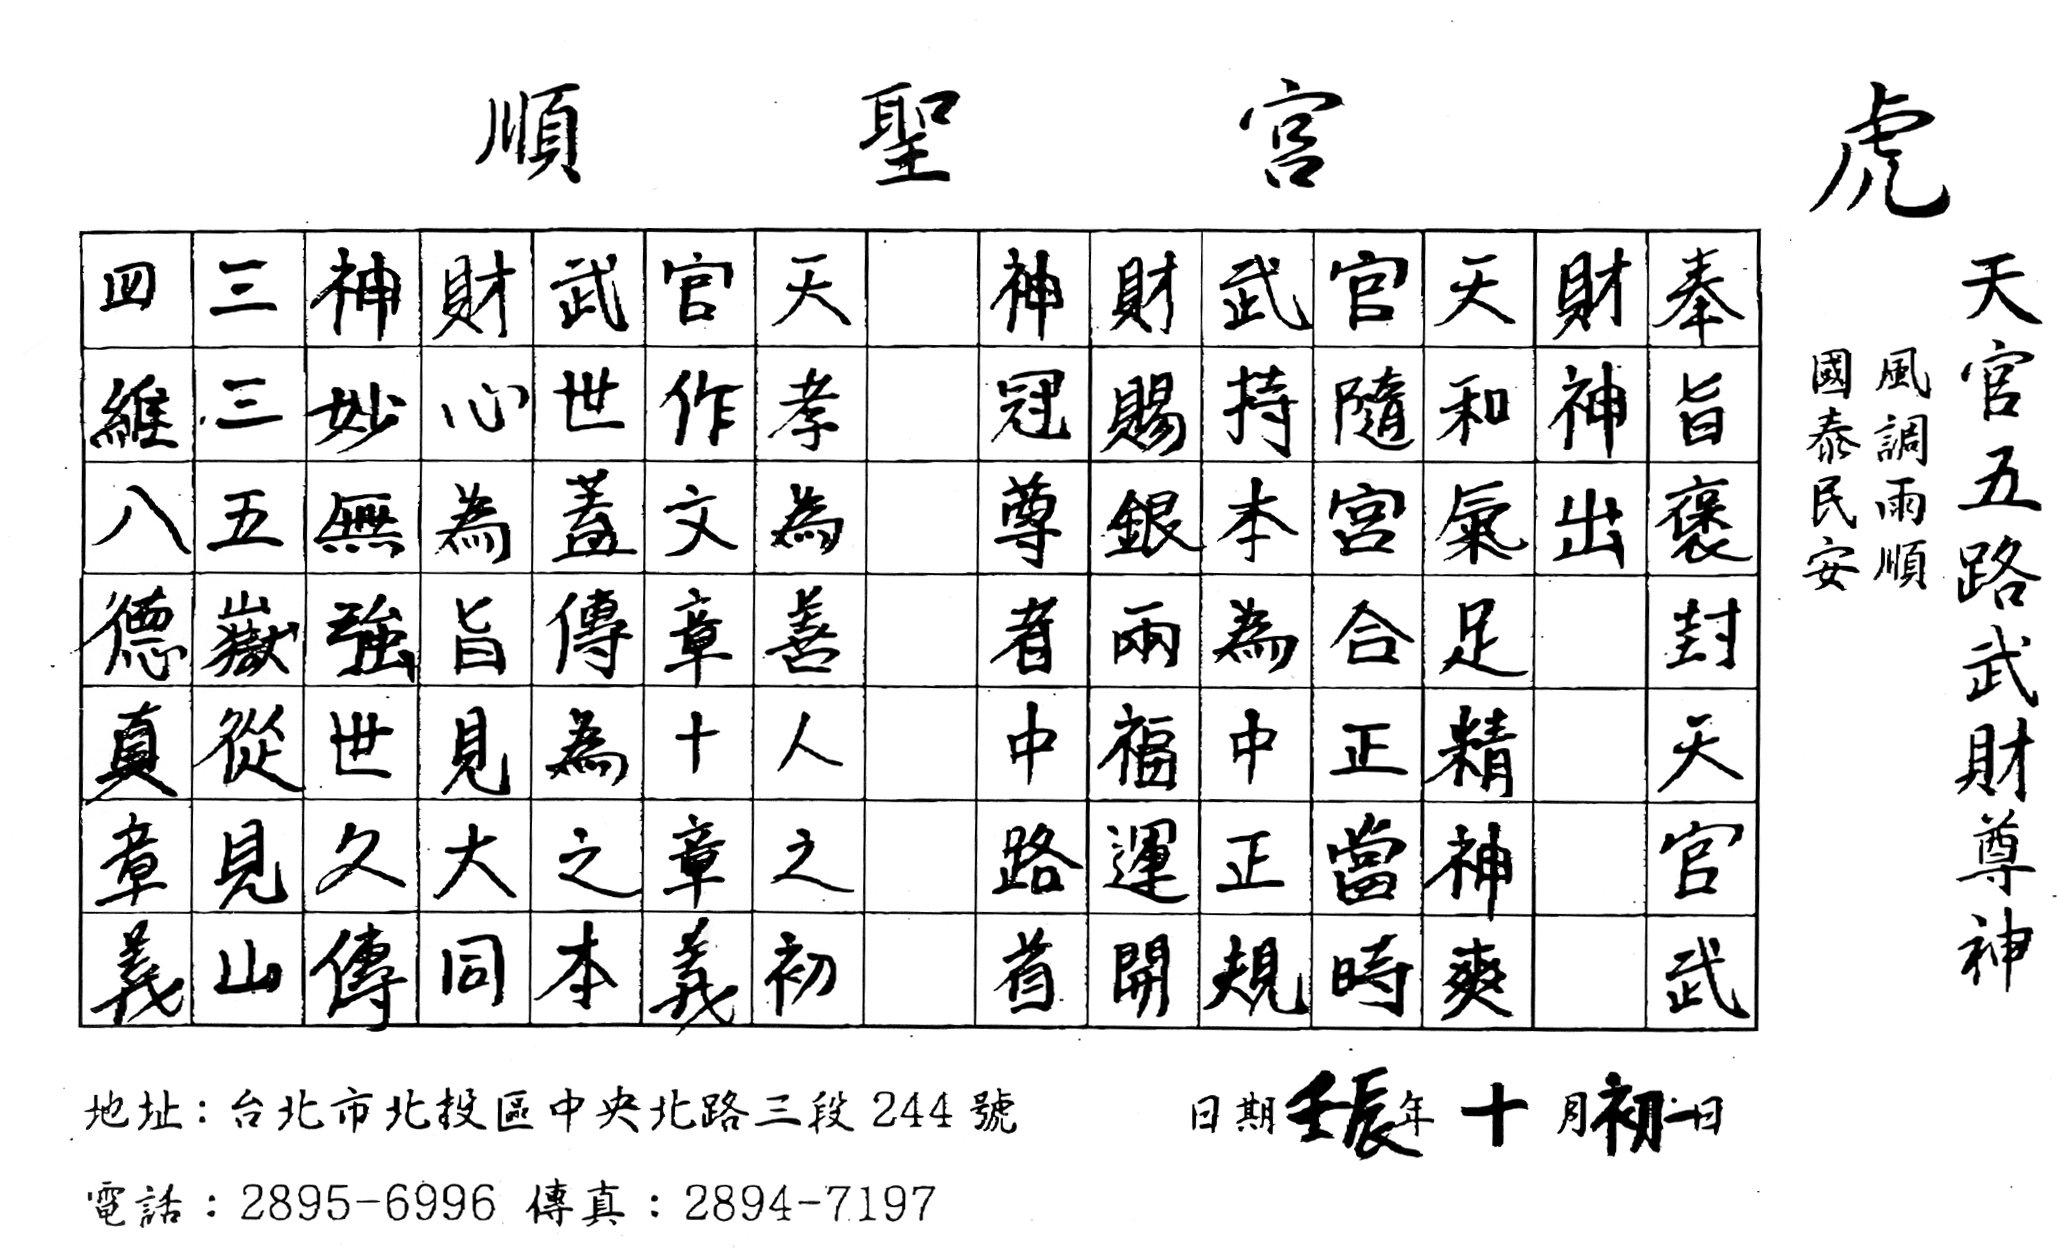 順聖宮
虎
天官五路武財尊神
風調雨順
國泰民安
奉旨褒封天官武
財神出
天和氣足精神爽
官隨宮合正當時
武持本為中正規
財賜銀兩福運開
神冠尊者中路首
天孝為善人之初
官作文章十章義
武世蓋傳為之本
財心為旨見大同
神妙無強世久傳
三三五嶽從見山
四維八德真章義
地址：台北市北投區中央北路三段244號
日期壬辰年十月初一日
電話：2895-6996 傳真：2894-7197